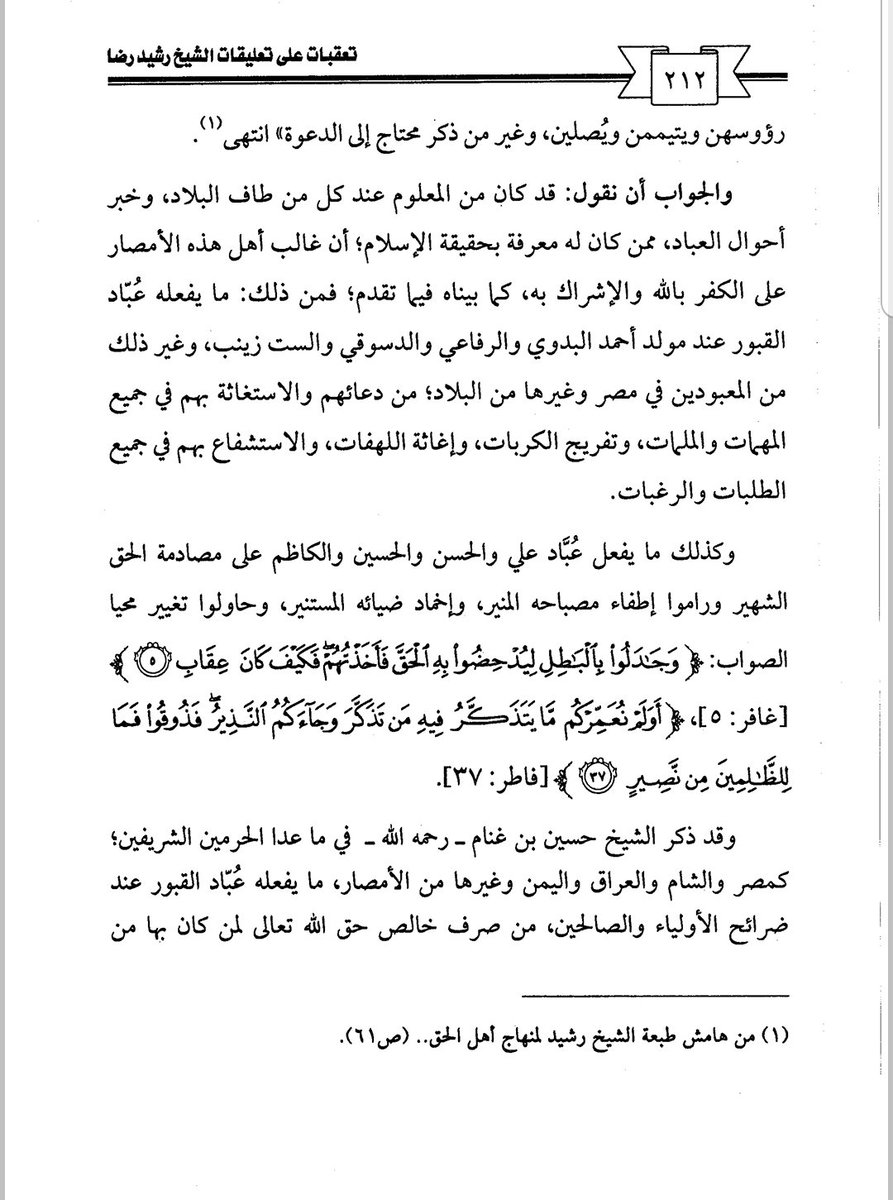 تعقبات على تعليقات الشيخ رشيد رضا
٢١٢
رؤوسهن ويتيممن ويُصلين، وغير من ذكر محتاج إلى الدعوة» انتهى(١).
والجواب أن نقول: قد كان من المعلوم عند كل من طاف البلاد، وخبر
أحوال العباد، ممن كان له معرفة بحقيقة الإسلام؛ أن غالب أهل هذه الأمصار
على الكفر بالله والإشراك به، كما بيناه فيما تقدم؛ فمن ذلك: ما يفعله عُبّاد
القبور عند مولد أحمد البدوي والرفاعي والدسوقي والست زينب، وغير ذلك
من المعبودين في مصر وغيرها من البلاد؛ من دعائهم والاستغاثة بهم في جميع
المهمات والملمات، وتفريج الكربات، وإغاثة اللهفات، والاستشفاع بهم في جميع
الطلبات والرغبات.
وكذلك ما يفعل عُبَّاد علي والحسن والحسين والكاظم على مصادمة الحق
الشهير وراموا إطفاء مصباحه المنير، وإخماد ضيائه المستنير، وحاولوا تغيير محيا
الصواب: ﴿ وَجَٰدَلُوا۟ بِٱلْبَٰطِلِ لِيُدْحِضُوا۟ بِهِ ٱلْحَقَّ فَأَخَذْتُهُمْ ۖ فَكَيْفَ كَانَ عِقَابِ ٥ ﴾
[غافر: ٥]، ﴿ أَوَلَمْ نُعَمِّرْكُم مَّا يَتَذَكَّرُ فِيهِ مَن تَذَكَّرَ وَجَآءَكُمُ ٱلنَّذِيرُ ۖ فَذُوقُوا۟ فَمَا
لِلظَّٰلِمِينَ مِن نَّصِيرٍ ٣٧ ﴾ [فاطر: ٣٧].
وقد ذكر الشيخ حسين بن غنام ـ رحمه الله ـ في ما عدا الحرمين الشريفين؛
كمصر والشام والعراق واليمن وغيرها من الأمصار، ما يفعله عُبّاد القبور عند
ضرائح الأولياء والصالحين، من صرف خالص حق الله تعالى لمن كان بها من
(١) من هامش طبعة الشيخ رشيد لمنهاج أهل الحق.. (ص٦١).